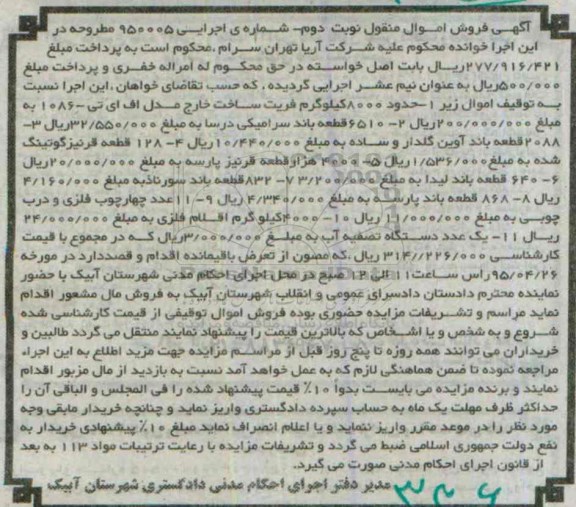 آگهـی فروش امـوال منقول نوبت دوم- شمـاره ی اجرایـی ۹۵۰۰۰۵ مطروحه در
این اجرا خوانده محکوم علیه شرکت آریا تهران سـرام ،محکوم است به پرداخت مبلغ
۲۷۷/۹۱۶/۴۲۱ریـال بابت اصل خواسـته در حق محکـوم له امراله خفـری و پرداخت مبلغ
۵۰۰/۰۰۰ریال به عنوان نیم عشـر اجرایی گردیده ، که حسب تقاضای خواهان ،این اجرا نسبت
بـه توقیف اموال زیر ۱-حدود ۸۰۰۰کیلوگرم فریت سـاخت خارج مـدل اف ای تی -۱۰۸۶ به
مبلغ ۲۰۰/۰۰۰/۰۰۰ریال ۲- ۶۵۱۰قطعه باند سرامیکی درسا به مبلغ ۳۲/۵۵۰/۰۰۰ریال ۳-
۲۰۸۸قطعه باند آوین گلدار و سـاده به مبلغ ۱۰/۴۴۰/۰۰۰ریال ۴- ۱۲۸ قطعه قرنیزگوتینگ
شده به مبلغ۱/۵۳۶/۰۰۰ریال ۵- ۴۰۰۰ هزارقطعه قرنیز پارسه به مبلغ ۲۰/۰۰۰/۰۰۰ریال
۶- ۶۴۰ قطعه باند لیدا به مبلغ ۳/۲۰۰/۰۰۰ ۷- ۸۳۲قطعه باند سورناذبه مبلغ ۴/۱۶۰/۰۰۰
ریال ۸- ۸۶۸ قطعه باند پارسـه به مبلغ ۴/۳۴۰/۰۰۰ ریال ۹-۱۱عدد چهارچوب فلزی و درب
چوبـی به مبلغ ۱۱/۰۰۰/۰۰۰ ریال ۱۰- ۴۰۰۰کیلو گرم اقـلام فلزی به مبلغ ۲۴/۰۰۰/۰۰۰
ریـال ۱۱- یک عدد دسـتگاه تصفیه آب به مبلـغ ۳/۰۰۰/۰۰۰ریال کـه در مجموع با قیمت
کارشناسـی ۳۱۴//۲۲۶/۰۰۰ ریال ،که مصون از تعرض باقیمانده اقدام و قصددارد در مورخه
۹۵/۰۴/۲۶راس سـاعت۱۱ الی ۱۲ صبح در محل اجرای احکام مدنی شهرستان آبیک با حضور
نماینده محترم دادستان دادسرای عمومی و انقلاب شهرستان آبیک به فروش مال مشعور اقدام
نماید مراسم و تشـریفات مزایده حضوری بوده فروش اموال توقیفی از قیمت کارشناسی شده
شـروع و به شخص و یا اشـخاص که بالاترین قیمت را پیشنهاد نمایند منتقل می گردد طالبین و
خریداران می توانند همه روزه تا پنج روز قبل از مراسـم مزایده جهت مزید اطلاع به این اجراء
مراجعه نموده تا ضمن هماهنگی لازم که به عمل خواهد آمد نسبت به بازدید از مال مزبور اقدام
نمایند و برنده مزایده می بایسـت بدوا ۱۰٪ قیمت پیشنهاد شده را فی المجلس و الباقی آن را
حداکثر ظرف مهلت یک ماه به حساب سپرده دادگستری واریز نماید و چنانچه خریدار مابقی وجه
مورد نظر را در موعد مقرر واریز ننماید و یا اعلام انصراف نماید مبلغ ۱۰٪ پیشنهادی خریدار به
نفع دولت جمهوری اسلامی ضبط می گردد و تشریفات مزایده با رعایت ترتیبات مواد ۱۱۳ به بعد
از قانون اجرای احکام مدنی صورت می گیرد.
مدیر دفتر اجرای احکام مدنی دادگستری شهرستان آبیک